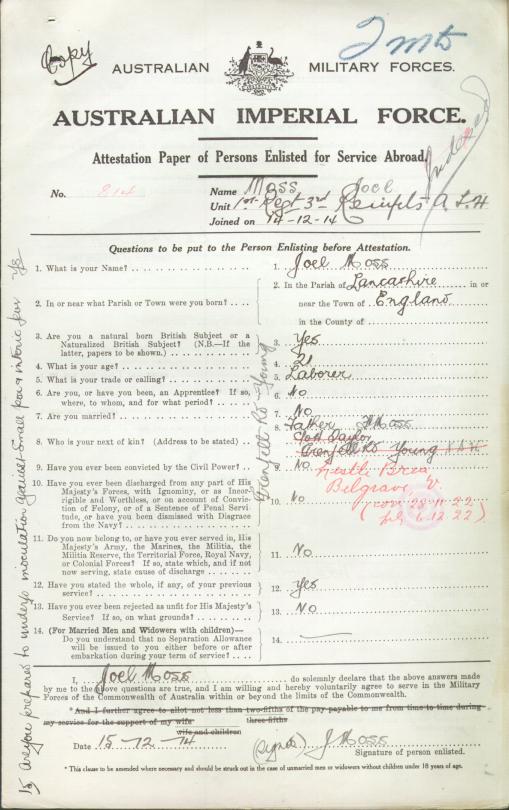 Copy
2 mts
AUSTRALIAN MILITARY FORCES.
AUSTRALIAN IMPERIAL FORCE.
Indexed
Attestation Paper of Persons Enlisted for Service Abroad.
No. 814
Name Moss Joel
Unit 1st Regt 3rd Reinfts A L H
Joined on 14-12-14
Questions to be put to the Person Enlisting before Attestation.
1. What is your Name? 1. Joel Moss
2. In or near what Parish or Town were you born? 2. In the Parish of Lancashire in or
near the Town of England
in the County of
3. Are you a natural born British Subject or a
Naturalized British Subject? (N.B.—If the
latter, papers to be shown.) 3. Yes
4. What is your age? 4. 21
5. What is your trade or calling? 5. Laborer
6. Are you, or have you been, an Apprentice? If so,
where, to whom, and for what period? 6. No
7. Are you married? 7. No
8. Who is your next of kin? (Address to be stated) 8. Father Moss
Grenfell Rd Young N.S.W.
Grenfell Rd Young
9. Have you ever been convicted by the Civil Power? 9. No
Belgrave V.
10. Have you ever been discharged from any part of His
Majesty's Forces, with Ignominy, or as Incor-
rigible and Worthless, or on account of Convic-
tion of Felony, or of a Sentence of Penal Servi-
tude, or have you been dismissed with Disgrace
from the Navy? 10. No
11. Do you now belong to, or have you ever served in, His
Majesty's Army, the Marines, the Militia, the
Militia Reserve, the Territorial Force, Royal Navy,
or Colonial Forces? If so, state which, and if not
now serving, state cause of discharge 11. No
12. Have you stated the whole, if any, of your previous
service? 12. Yes
13. Have you ever been rejected as unfit for His Majesty's
Service? If so, on what grounds? 13. No
14. (For Married Men and Widowers with children)—
Do you understand that no Separation Allowance
will be issued to you either before or after
embarkation during your term of service? 14.
15 Are you prepared to undergo inoculation against Small pox & enteric fever Yes
I, Joel Moss do solemnly declare that the above answers made
by me to the above questions are true, and I am willing and hereby voluntarily agree to serve in the Military
Forces of the Commonwealth of Australia within or beyond the limits of the Commonwealth.
* And I further agree to allot not less than two-fifths of the pay payable to me from time to time during
three-fifths
my service for the support of my wife
wife and children
Date 15-12-14 (Signed) J Moss
Signature of person enlisted.
* This clause to be amended where necessary and should be struck out in the case of unmarried men or widowers without children under 18 years of age.